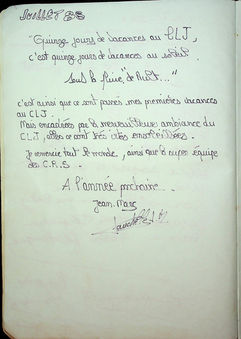 Juillet 88
"Quinze jours de vacances au CLJ,
c'est quinze jours de vacances au soleil
sous la pluie, de Nuits..."
c'est ainsi que ce sont passés mes premières vacances
au CLJ.
Mais encadrées par la merveilleuse ambiance du
CLJ, elles ce sont très vites ensoleillées.
Je remercie tout le monde, ainsi que la super équipe
des C.R.S.
A l'année prochaine.
Jean-Marc